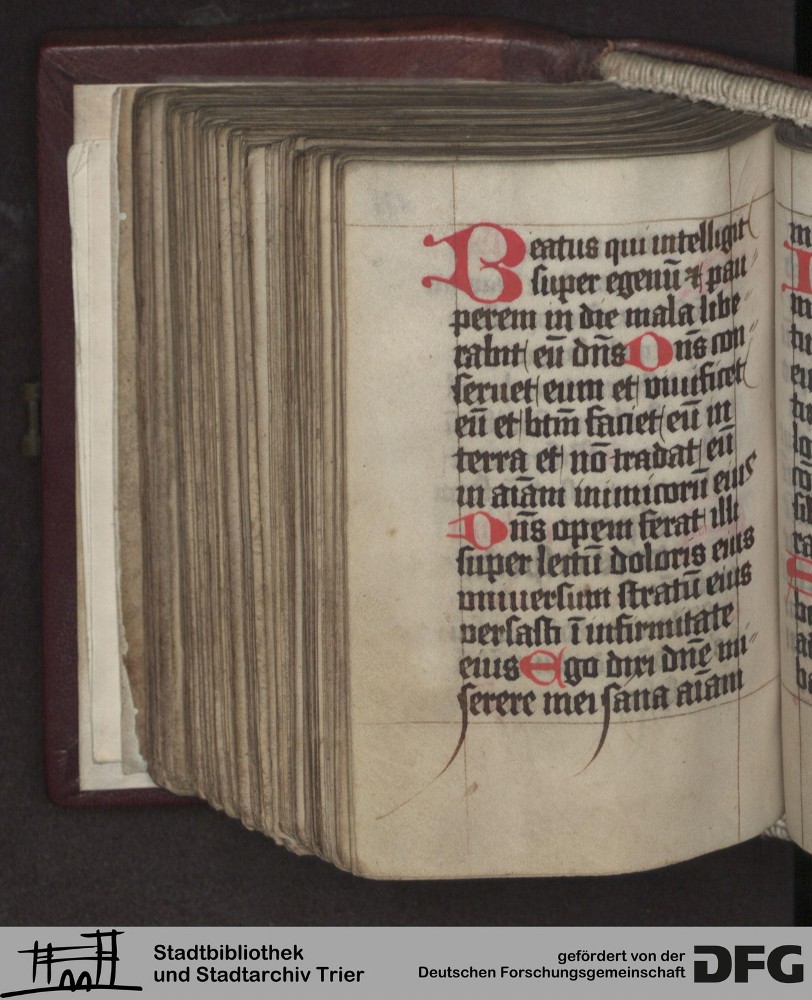 Beatus qui intelligit
super egenū ⁊ pau
perem in die mala libe
rabit eū dn̄s Dn̄s con
seruet eum et viuificet
eū et btm̄ faciet eū in
terra et nō tradat eū
in aīam inimicorū eius
Dn̄s opem ferat illi
super lectū doloris eius
vniuersum stratū eius
versasti ī infirmitate
eius Ego dixi dn̄e mi
serere mei sana aīam
Stadtbibliothek
und Stadtarchiv Trier
gefördert von der
Deutschen Forschungsgemeinschaft
DFG